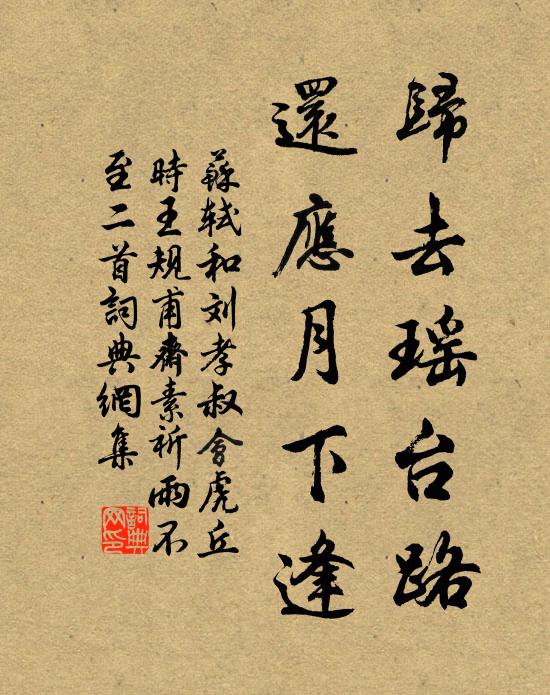 歸去瑶台路
還應月下逢
蘇轼和刘孝叔會虎丘
時王規甫齋素祈雨不
至二首詞典網集
詞典網印